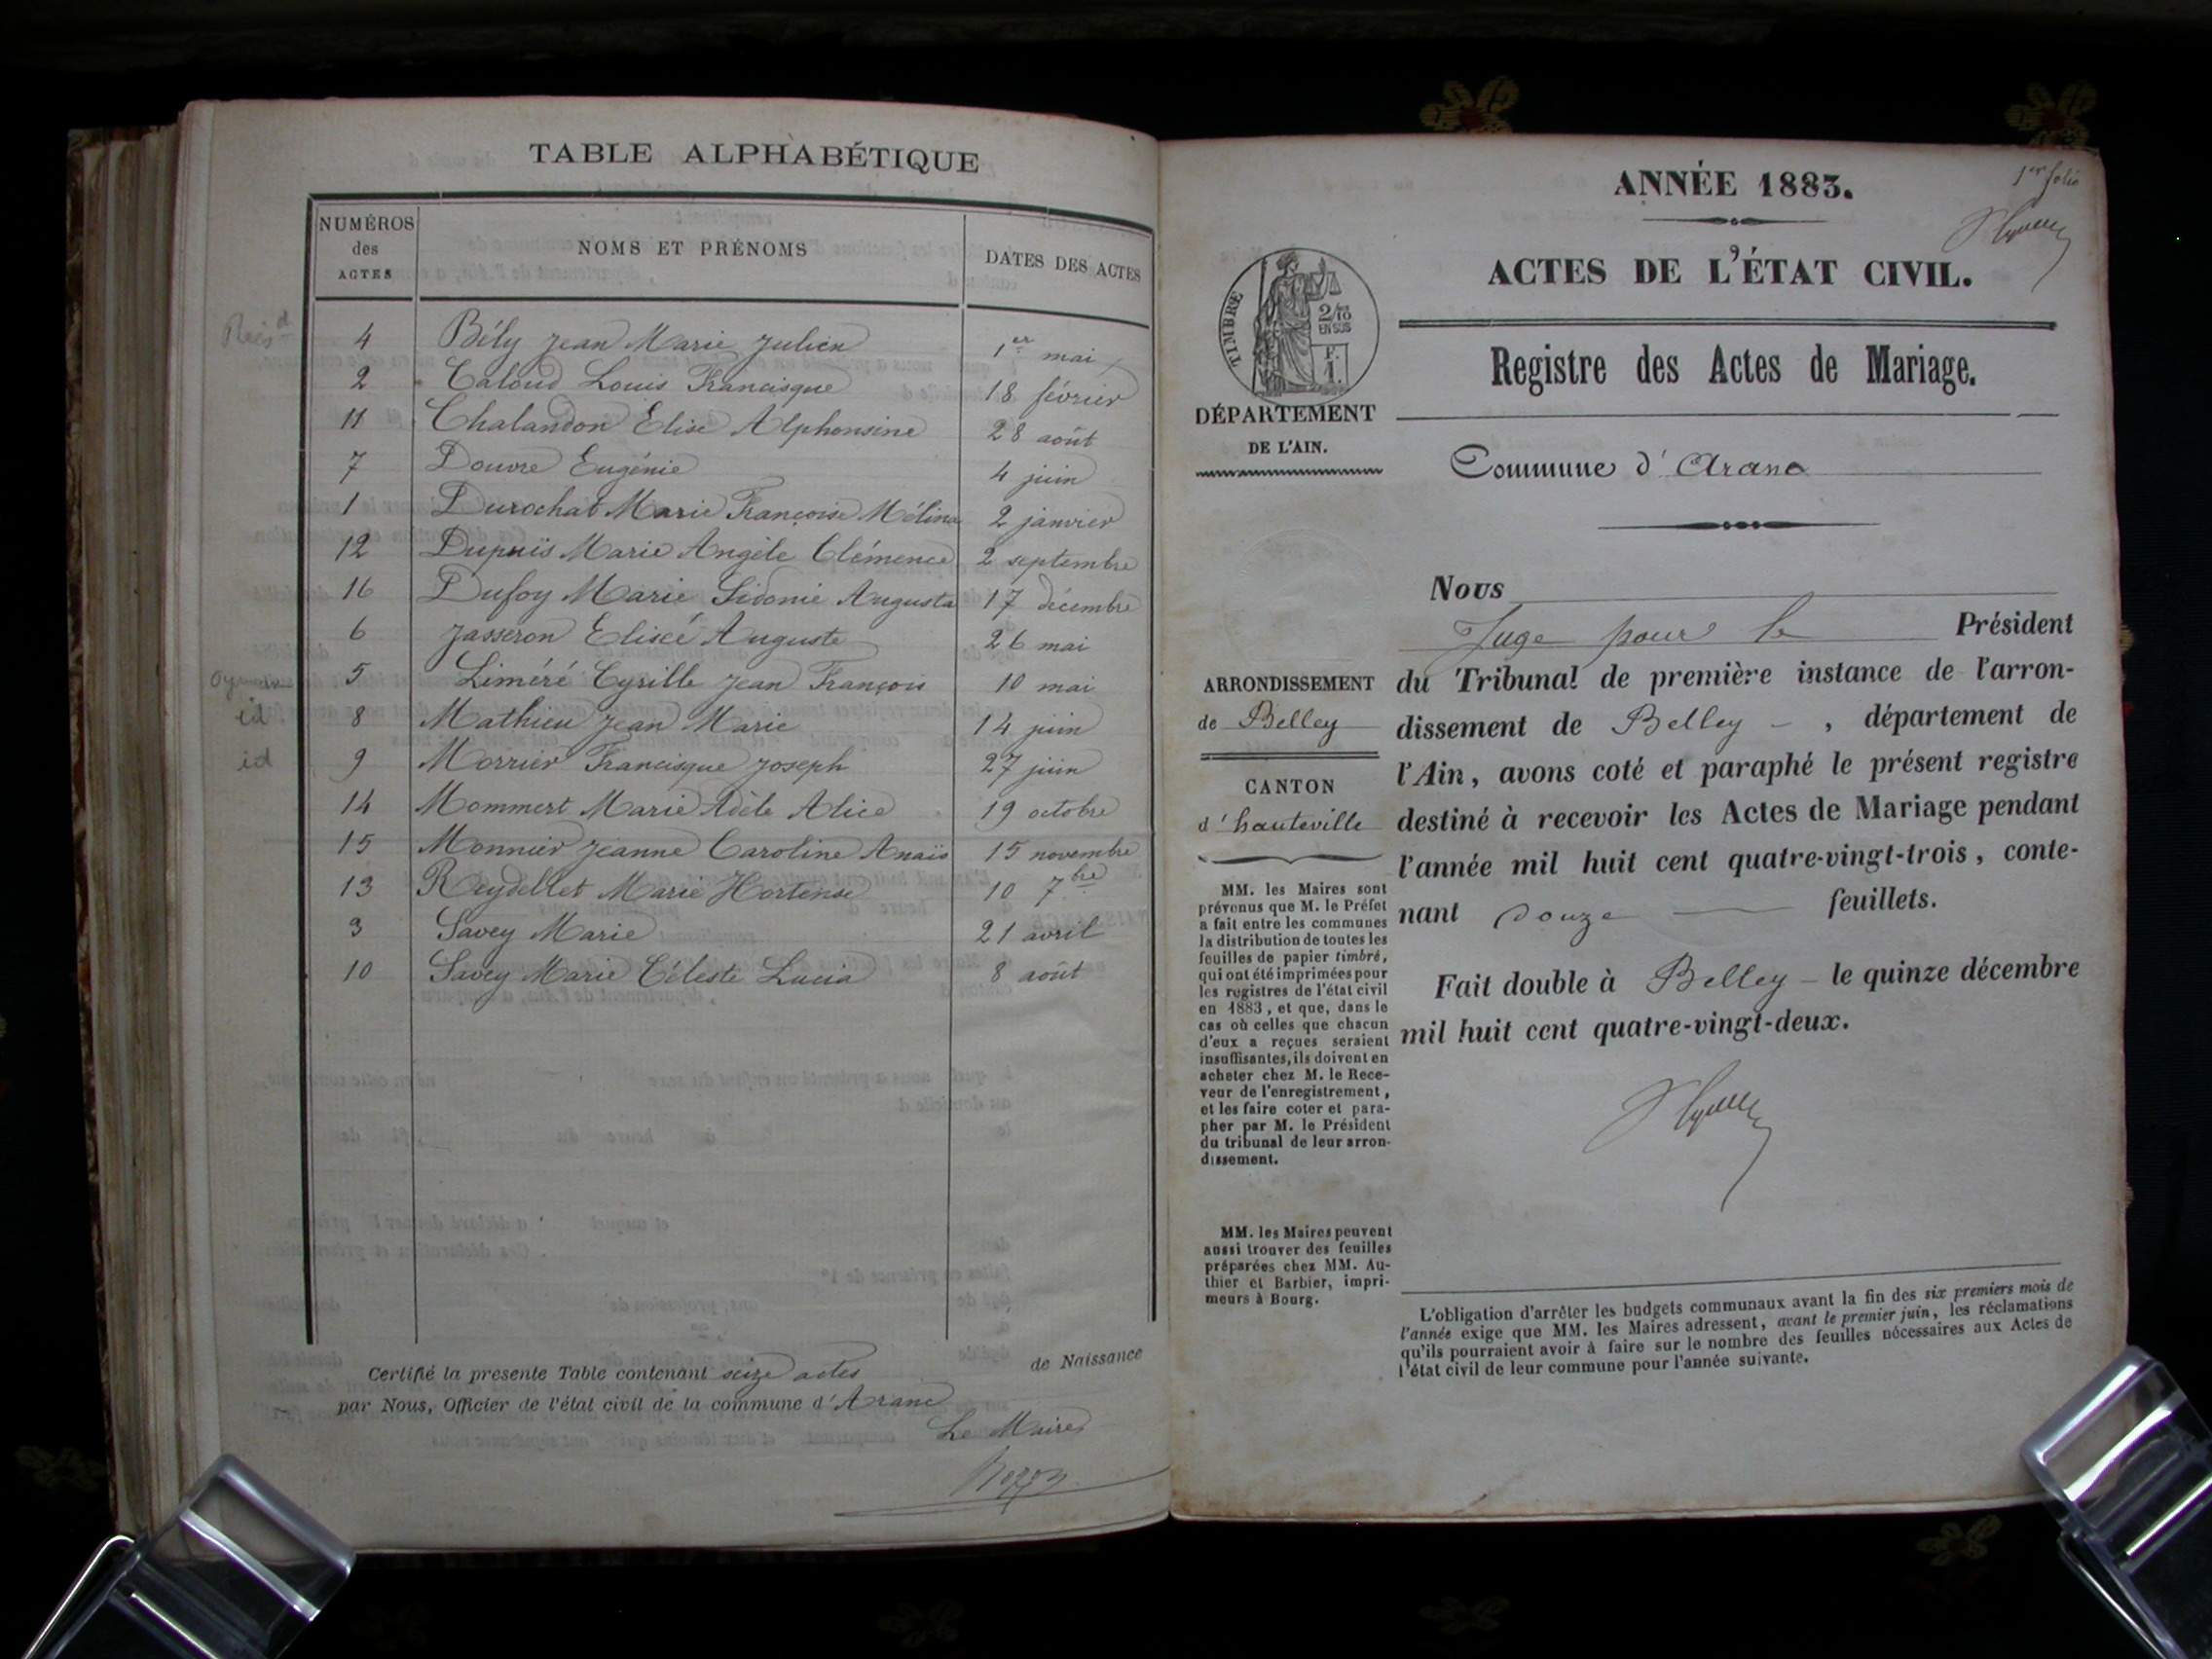 TABLE ALPHABÉTIQUE
NUMÉROS des ACTES NOMS ET PRÉNOMS DATES DES ACTES
4 Bély Jean Marie Julien 1er mai
2 Caloud Louis Francisque 18 février
11 Chalandon Elise Alphonsine 28 août
7 Douvre Eugénie 4 juin
1 Durochat Marie Françoise Mélina 2 janvier
12 Dupuis Marie Angèle Clémence 2 septembre
16 Dufoy Marie Sidonie Augusta 17 décembre
6 Jasseron Elisée Auguste 26 mai
5 Liméré Cyrille Jean François 10 mai
id 8 Mathieu Jean Marie 14 juin
id 9 Morrier Francisque Joseph 27 juin
14 Mommert Marie Adèle Alice 19 octobre
15 Monnier Jeanne Caroline Anaïs 15 novembre
13 Reydellet Marie Hortense 10 7bre
3 Savey Marie 21 avril
10 Savey Marie Céleste Lucia 8 août
Certifié la presente Table contenant seize actes de Naissance
par Nous, Officier de l'état civil de la commune d'Aranc
Le Maire
1er folio
ANNÉE 1883.
ACTES DE L'ÉTAT CIVIL.
Registre des Actes de Mariage.
TIMBRE
2/10
EN SUS
F.
1.
DÉPARTEMENT
DE L'AIN.
Commune d'Aranc
ARRONDISSEMENT
de Belley
CANTON
d'hauteville
MM. les Maires sont
prévenus que M. le Préfet
a fait entre les communes
la distribution de toutes les
feuilles de papier timbré,
qui ont été imprimées pour
les registres de l'état civil
en 1883, et que, dans le
cas où celles que chacun
d'eux a reçues seraient
insuffisantes, ils doivent en
acheter chez M. le Rece-
veur de l'enregistrement,
et les faire coter et para-
pher par M. le Président
du tribunal de leur arron-
dissement.
MM. les Maires peuvent
aussi trouver des feuilles
préparées chez MM. Au-
thier et Barbier, impri-
meurs à Bourg.
Nous
Juge pour le Président
du Tribunal de première instance de l'arron-
dissement de Belley - , département de
l'Ain, avons coté et paraphé le présent registre
destiné à recevoir les Actes de Mariage pendant
l'année mil huit cent quatre-vingt-trois, conte-
nant douze feuillets.
Fait double à Belley - le quinze décembre
mil huit cent quatre-vingt-deux.
L'obligation d'arrêter les budgets communaux avant la fin des six premiers mois de
l'année exige que MM. les Maires adressent, avant le premier juin, les réclamations
qu'ils pourraient avoir à faire sur le nombre des feuilles nécessaires aux Actes de
l'état civil de leur commune pour l'année suivante.